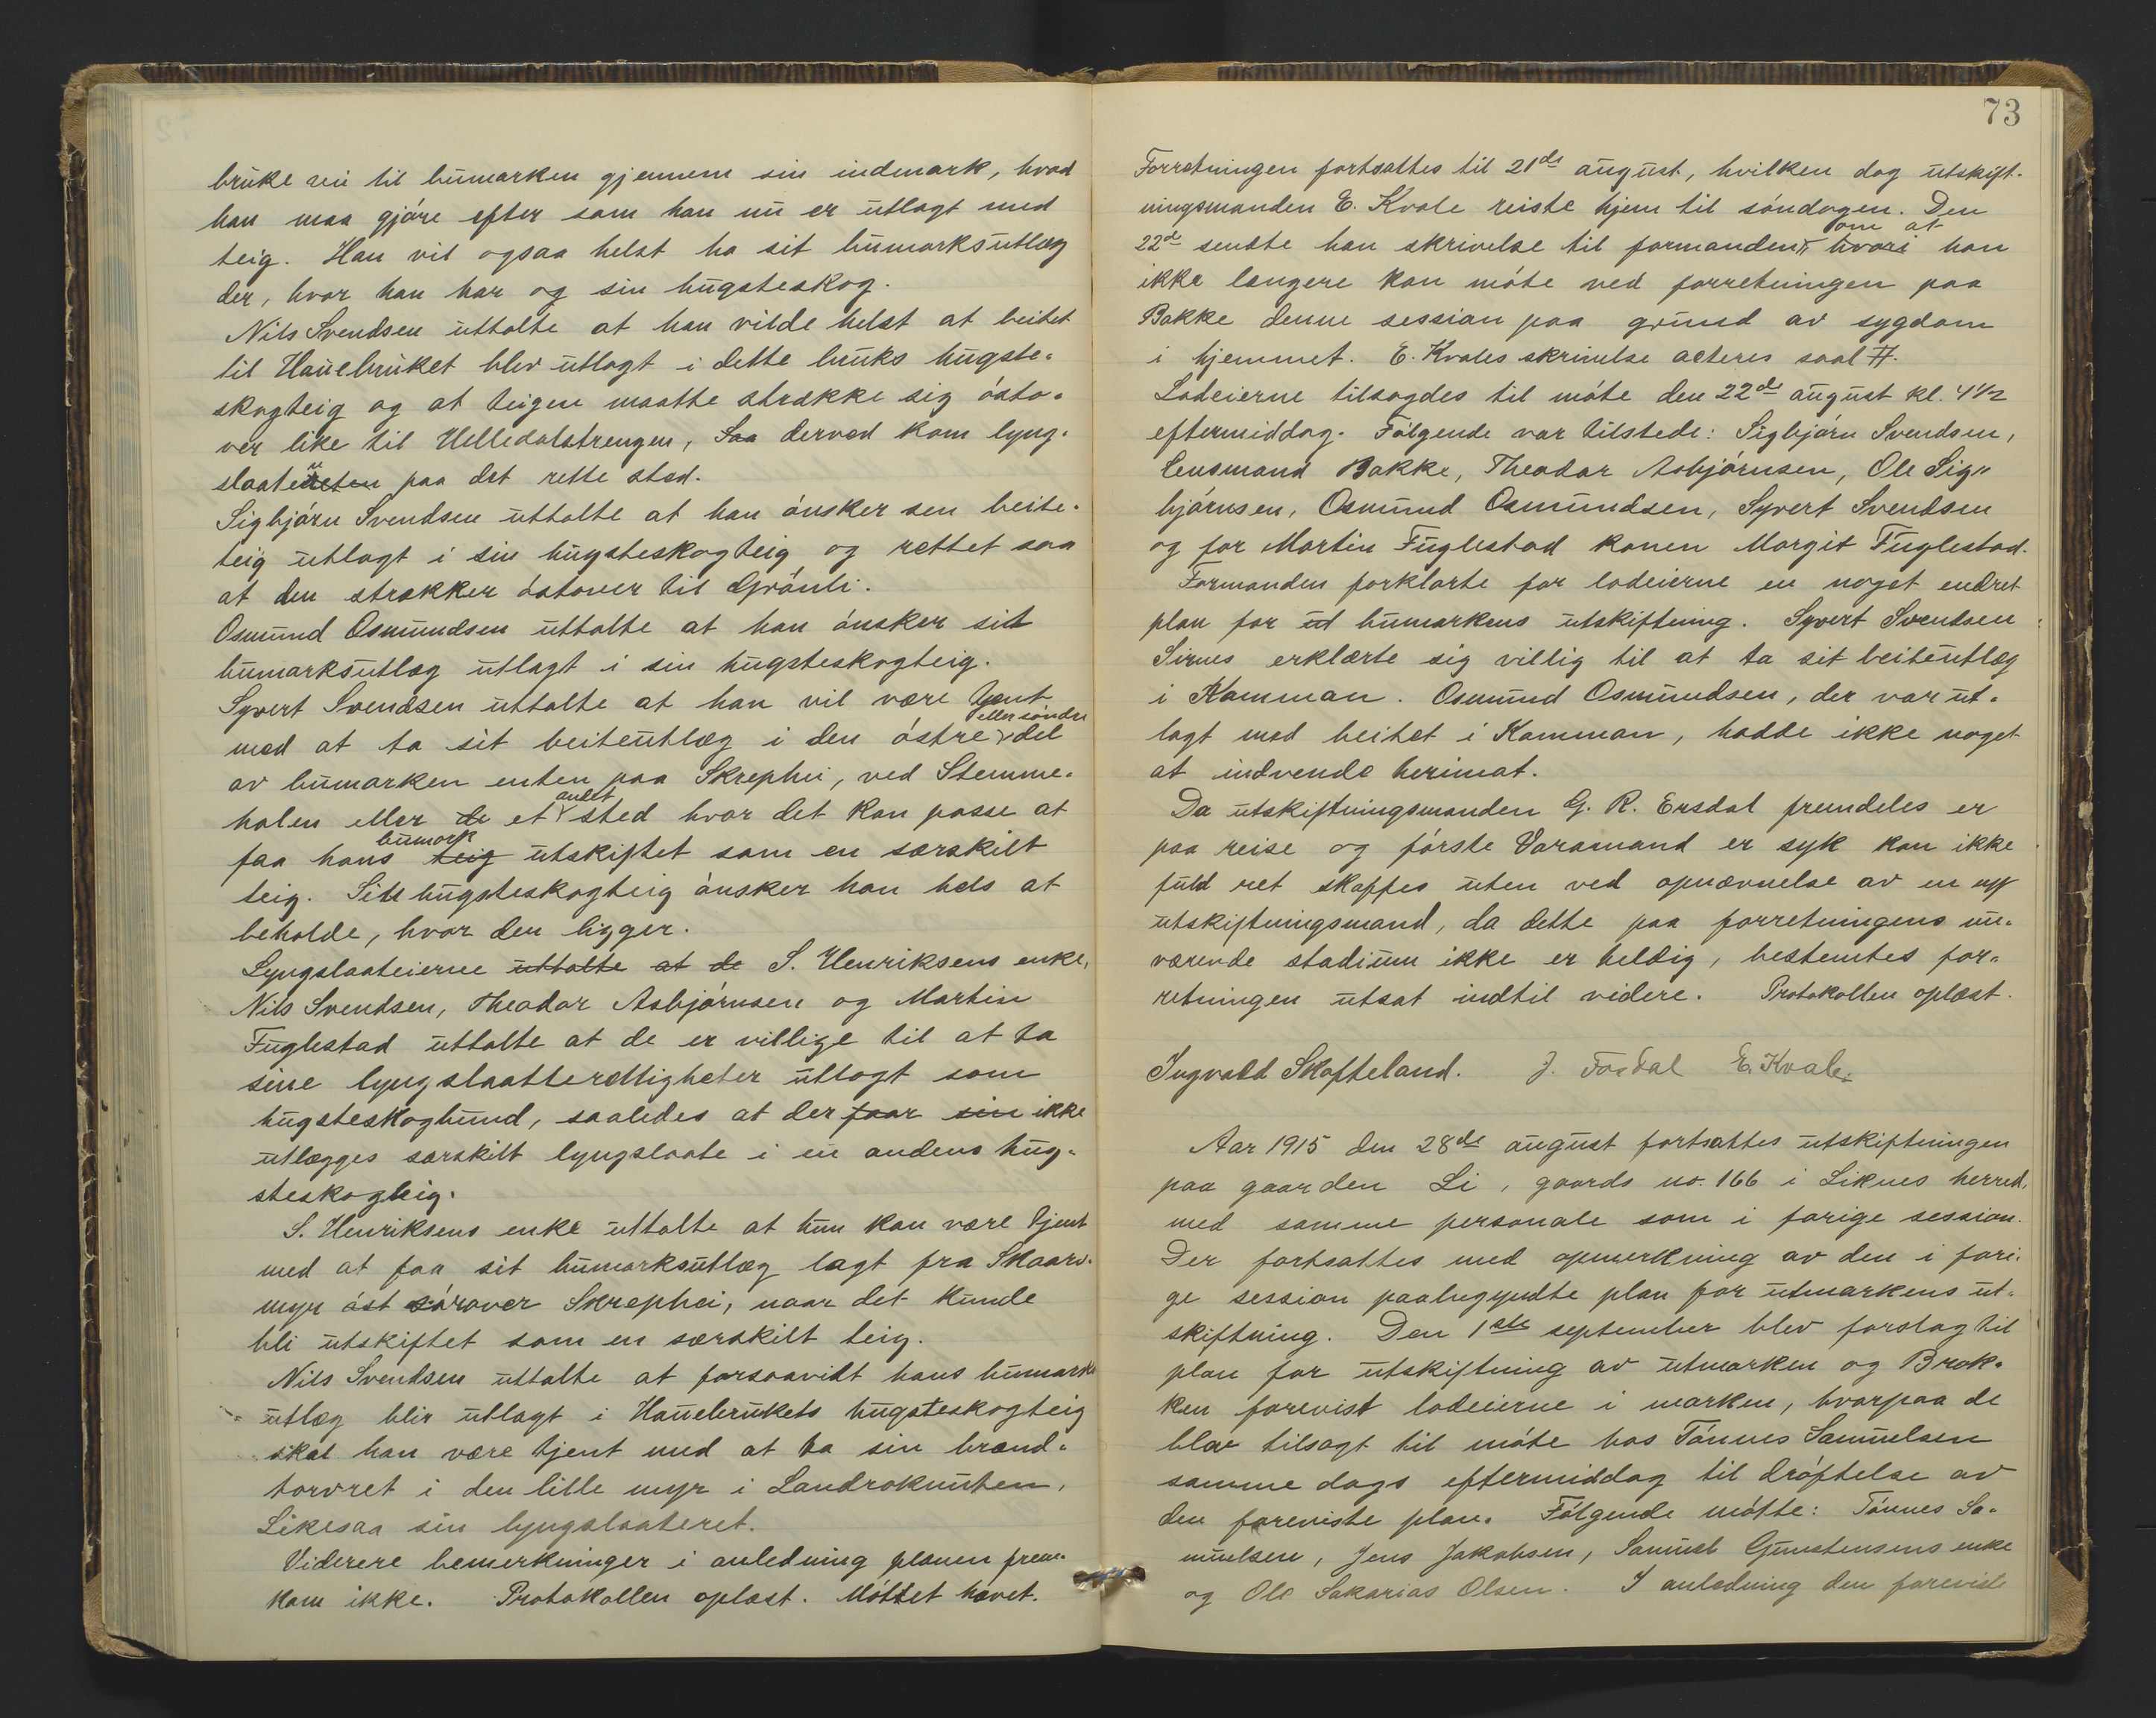 bruke vei til bumarken gjennem sin indmark, hvad
han maa gjöre efter som han nu er utlagt med
teig. Han vil ogsaa helst ha sit bumarksutlæg
der, hvor han har og sin hugsteskog.
Nils Svendsen uttalte at han vilde helst at beitet
til Hauebruket blev utlagt i dette bruks hugste-
skogteig og at teigen maatte strække sig östo-
ver like til Helledalstrengen, Saa derved kom lyng-
slaaten paa det rette sted.
Sigbjörn Svendsen uttalte at han önsker sen beite-
teig utlagt i sin hugsteskogteig og rettet saa
at den strækker östover til Grönli.
Osmund Osmundsen uttalte at han önsker sit
bumarksutlæg utlagt i sin hugsteskogteig.
Syvert Svendsen uttalte at han vil være tjent
med at ta sit beiteutlæg i den östre eller söndre del
av bumarken enten paa Skrephei, ved Stemme-
halen eller de et andet sted hvor det kan passe at
faa hans teig bumark utskiftet som en særskilt
teig. Sin hugsteskogteig önsker han hels at
beholde, hvor den ligger.
Lyngslaateierne uttalte at de S. Henriksens enke,
Nils Svendsen, Theodor Asbjörnsen og Martin
Fuglestad uttalte at de er villige til at ta
sine lyngslaatterettigheter utlagt som
hugsteskogbund, saaledes at der faar sin ikke
utlægges særskilt lyngslaate i en andens hug-
steskogteig.
S. Henriksens enke uttalte at hun kan være tjent
med at faa sit bumarksutlæg lagt fra Skaarv-
myr öst sörover Skrephei, naar det kunde
bli utskiftet som en særskilt teig.
Nils Svendsen uttalte at forsaavidt hans bumarks
utlæg blir utlagt i Hauebrukets hugsteskogteig
skal han være tjent med at ta sin brænd-
torvret i den lille myr i Landroknuten,
Likesaa sin lyngslaateret.
Viderere bemerkninger i anledning planen frem-
kom ikke. Protokollen oplæst. Möttet hævet.
73
Forretningen fortsattes til 21de august, hvilken dag utskift-
ningsmanden E. Kvale reiste hjem til söndagen. Den
22de sendte han skrivelse til formanden hvori om at han
ikke længere kan möte ved forretningen paa
Bakke denne session paa grund av sygdom
i hjemmet. E. Kvales skrivelse acteres saal #.
Lodeierne tilsagdes til möte den 22de august kl. 4 1/2
eftermiddag. Fölgende var tilstede: Sigbjörn Svendsen,
Lensmand Bakke, Theodor Asbjörnsen, Ole Sig-
björnsen, Osmund Osmundsen, Syvert Svendsen
og for Martin Fuglestad konen Margit Fuglestad.
Formanden forklarte for lodeierne en noget endret
plan for ut bumarkens utskiftning. Syvert Svendsen
Sirnes erklærte sig villig til at ta sit beiteutlæg
i Kamman. Osmund Osmundsen, der var ut-
lagt med beitet i Kamman, hadde ikke noget
at indvende herimot.
Da utskiftningsmanden G. R. Ersdal fremdeles er
paa reise og förste Varamand er syk kan ikke
fuld ret skaffes uten ved opnævnelse av en ny
utskiftningsmand, da dette paa forretningens nu-
værende stadium ikke er heldig, bestemtes for-
retningen utsat indtil videre. Protokollen oplæst.
Ingvald Skafteland. J. Fordal E. Kvale.
Aar 1915 den 28de august fortsattes utskiftningen
paa gaarden Li, gaards no. 166 i Liknes herred,
med samme personale som i forige session.
Der fortsattes med opmerkning av den i fori-
ge session paabegyndte plan for utmarkens ut-
skiftning. Den 1ste september blev forslag til
plan for utskiftning av utmarken og Brak-
ken forevist lodeierne i marken, hvorpaa de
blev tilsagt til möte hos Tönnes Samuelsen
samme dags eftermiddag til dröftelse av
den foreviste plan. Fölgende mötte: Tönnes Sa-
muelsen, Jens Jakobsen, Samuel Gunstensens enke
og Ole Sakarias Olsen. I anledning den foreviste